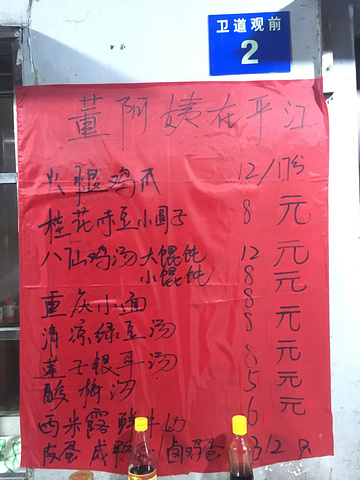 卫道观前
2
董阿姨在平江
火腿鸡爪 12/1份
桂花赤豆小圆子 8元
八仙鸡汤大馄饨 12元
小馄饨 8元
重庆小面 8元
清凉绿豆汤 8元
莲子银耳汤 8元
酸梅汤 5元
西米露鲜牛奶 6
皮蛋咸鸭 卤鸡蛋 3/2只